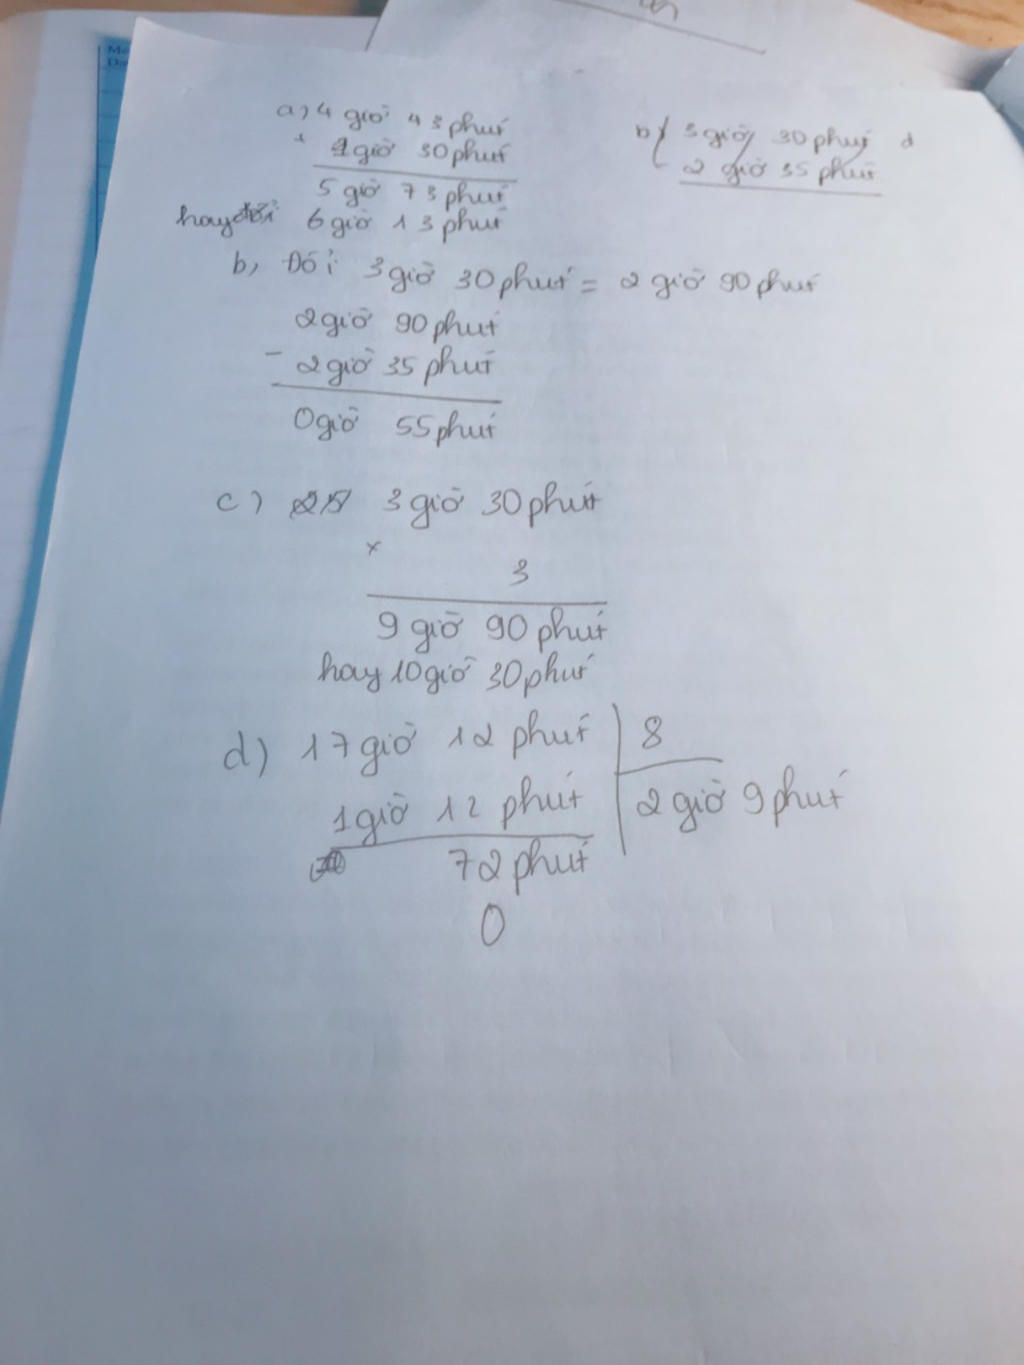 a) 4 giờ 43 phút
+ 1 giờ 30 phút
5 giờ 73 phút
hay 6 giờ 13 phút
b) 3 giờ 30 phút d
- 2 giờ 35 phút
b, Đổi 3 giờ 30 phút = 2 giờ 90 phút
2 giờ 90 phút
- 2 giờ 35 phút
0 giờ 55 phút
c) 3 giờ 30 phút
x
3
9 giờ 90 phút
hay 10 giờ 30 phút
d) 17 giờ 12 phút 8
1 giờ 12 phút 2 giờ 9 phút
72 phút
0